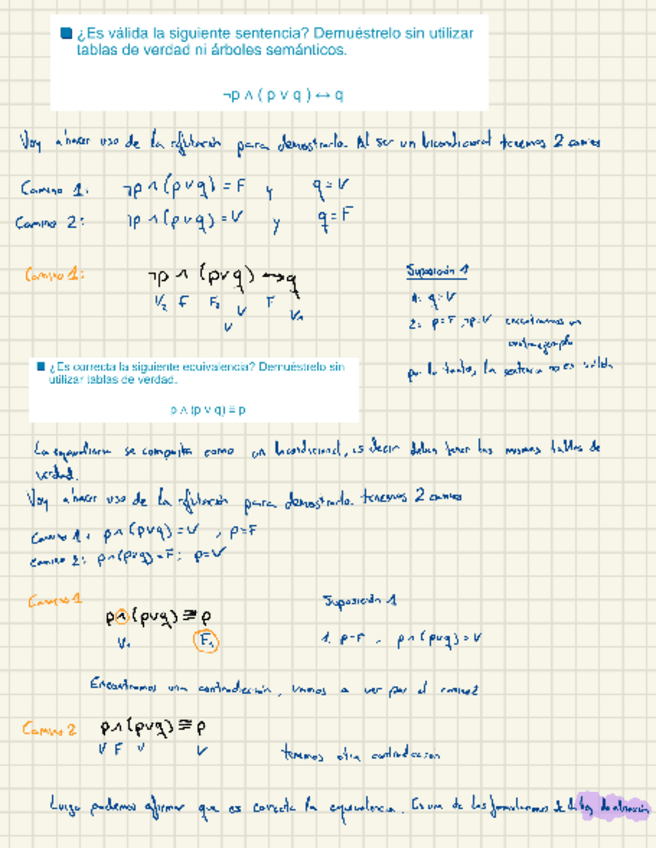 ¿Es válida la siguiente sentencia? Demuéstrelo sin utilizar
tablas de verdad ni árboles semánticos.
¬p ∧ ( p ∨ q ) ↔ q
Voy a hacer uso de la refutación para demostrarlo. Al ser un bicondicional tenemos 2 caminos
Camino 1: ¬p ∧ (p ∨ q) = F y q = V
Camino 2: ¬p ∧ (p ∨ q) = V y q = F
Camino 1: ¬p ∧ (p ∨ q) ↔ q
Suposición 1
1: q = V
2: p = F, ¬p = V encontramos un
contraejemplo
por lo tanto, la sentencia no es válida
¿Es correcta la siguiente equivalencia? Demuéstrelo sin
utilizar tablas de verdad.
p ∧ (p ∨ q) ≡ p
La equivalencia se comporta como un bicondicional, es decir deben tener las mismas tablas de
verdad.
Voy a hacer uso de la refutación para demostrarlo. tenemos 2 caminos
Camino 1: p ∧ (p ∨ q) = V , p = F
Camino 2: p ∧ (p ∨ q) = F ; p = V
Camino 1
p ∧ (p ∨ q) ≡ p
V₁ F₁
Suposición 1
1. p = F , p ∧ (p ∨ q) = V
Encontramos una contradicción, vamos a ver por el camino 2
Camino 2 p ∧ (p ∨ q) ≡ p
V F V V
tenemos otra contradicción
Luego podemos afirmar que es correcta la equivalencia. Es una de las de la ley de absorción